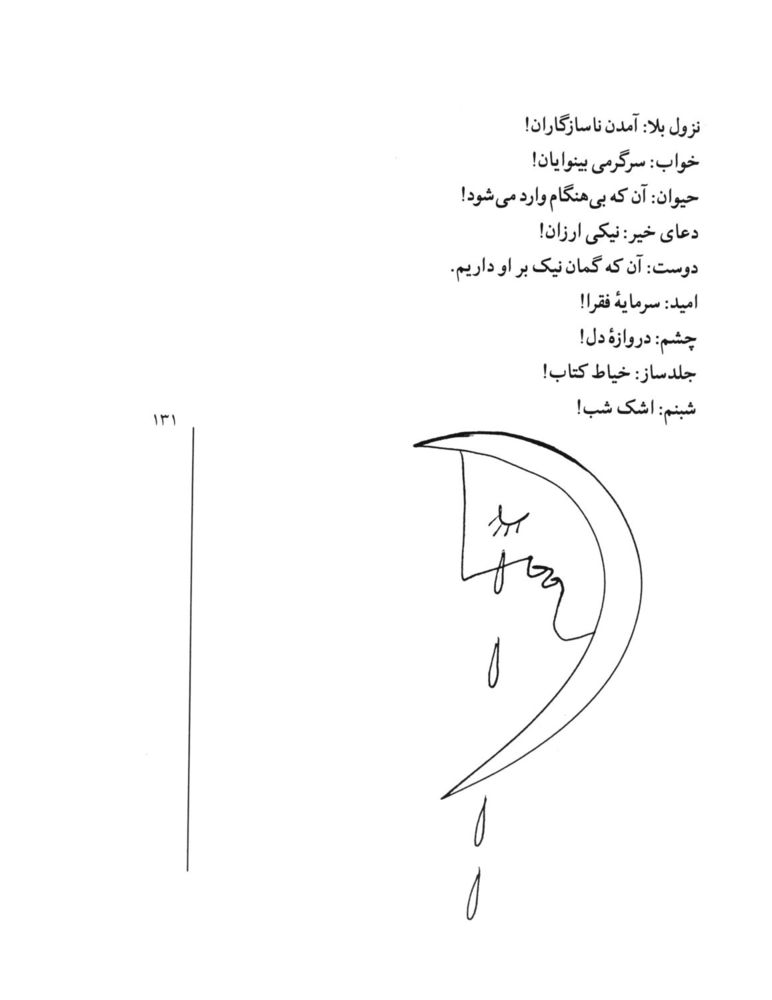 نزول بلا: آمدن ناسازگاران!
خواب: سرگرمی بینوایان!
حیوان: آن که بی‌هنگام وارد می‌شود!
دعای خیر: نیکی ارزان!
دوست: آن که گمان نیک بر او داریم.
امید: سرمایهٔ فقرا!
چشم: دروازهٔ دل!
جلدساز: خیاط کتاب!
شبنم: اشک شب!
۱۳۱